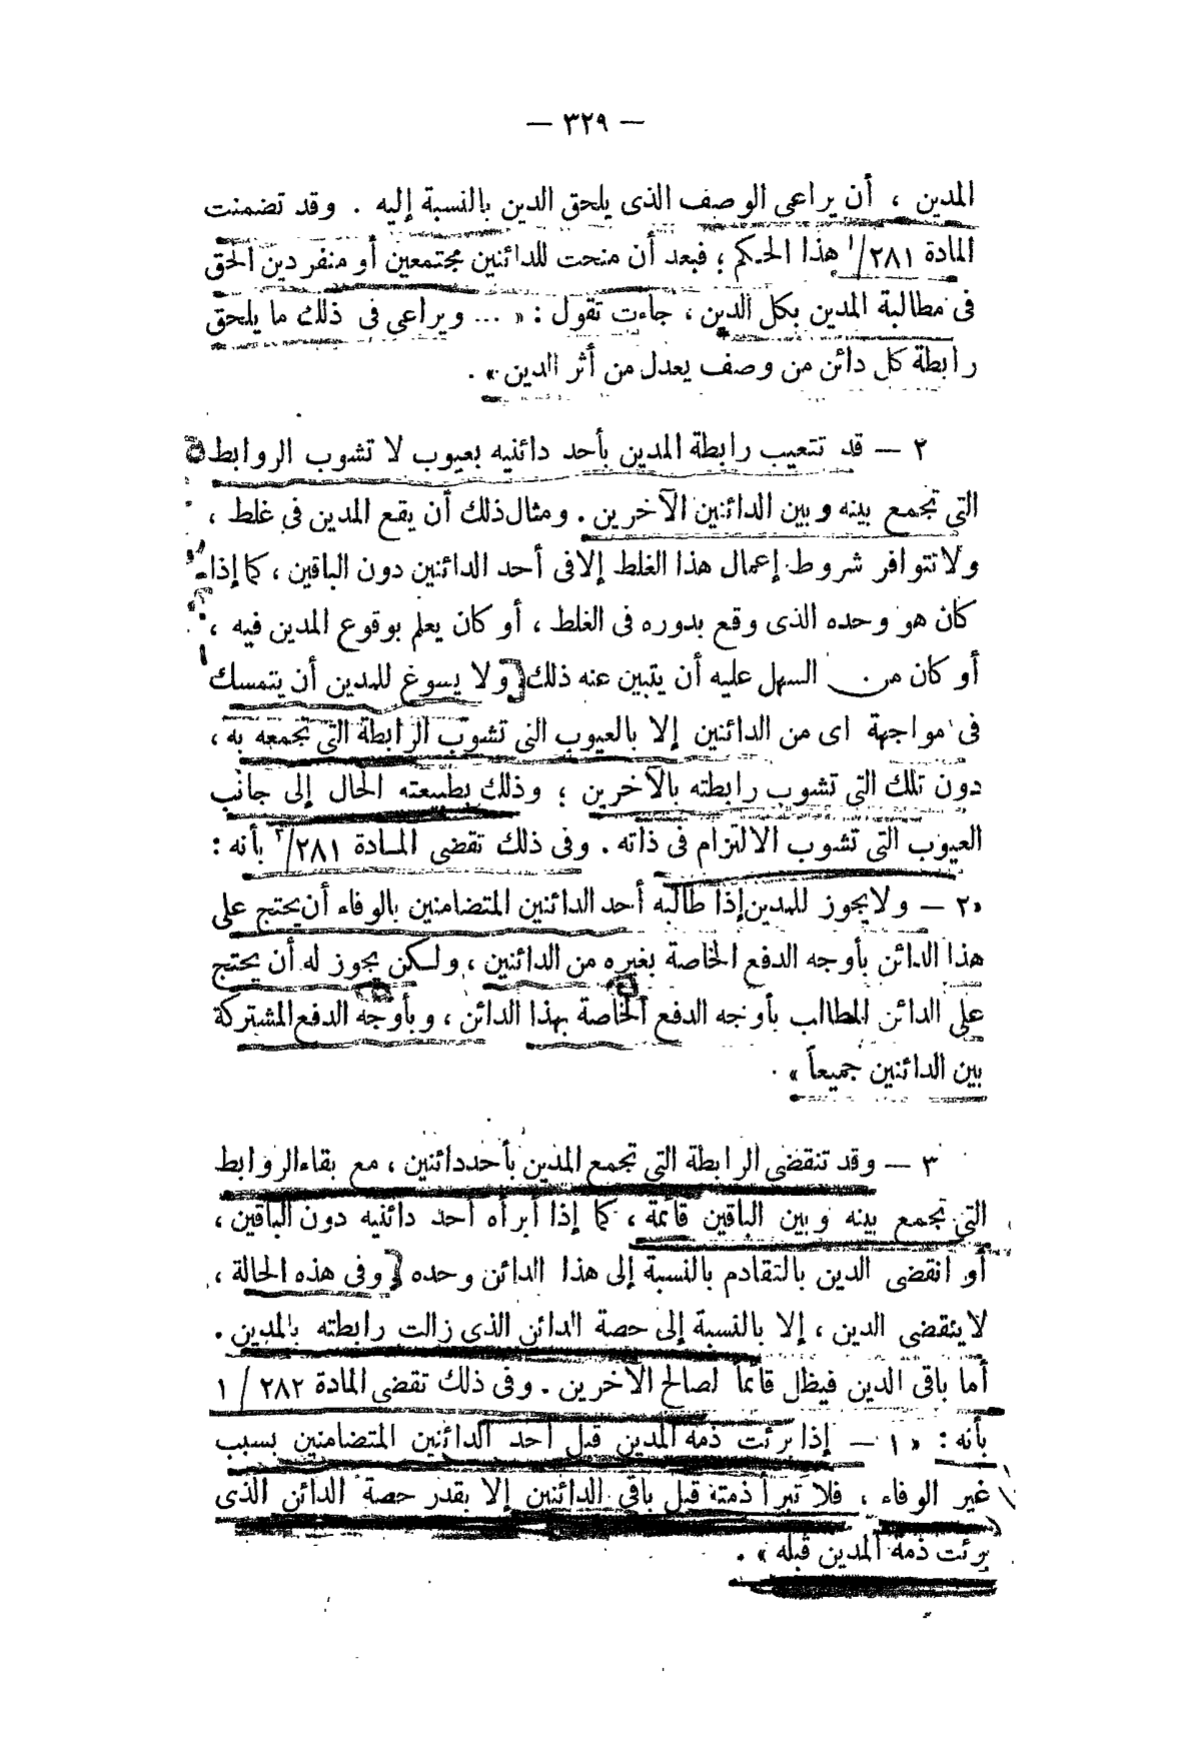 — ٣٢٩ —
المدين ، أن يراعى الوصف الذى يلحق الدين بالنسبة إليه . وقد تضمنت
المادة ٢٨١/١ هذا الحكم ؛ فبعد أن منحت للدائنين مجتمعين أو منفردين الحق
فى مطالبة المدين بكل الدين ، جاءت تقول : « ... ويراعى فى ذلك ما يلحق
رابطة كل دائن من وصف يعدل من أثر الدين » .
٢ — قد تتعيب رابطة المدين بأحد دائنيه بعيوب لا تشوب الروابط
التى تجمع بينه وبين الدائنين الآخرين . ومثال ذلك أن يقع المدين فى غلط ،
ولا تتوافر شروط إعمال هذا الغلط إلا فى أحد الدائنين دون الباقين ، كما إذا
كان هو وحده الذى وقع بدوره فى الغلط ، أو كان يعلم بوقوع المدين فيه ،
أو كان من السهل عليه أن يتبين عنه ذلك . ولا يسوغ للمدين أن يتمسك
فى مواجهة اى من الدائنين إلا بالعيوب التى تشوب الرابطة التى تجمعه به ،
دون تلك التى تشوب رابطته بالآخرين ؛ وذلك بطبيعته الحال إلى جانب
العيوب التى تشوب الالتزام فى ذاته . وفى ذلك تقضى المادة ٢٨١/٢ بأنه :
« ٢ — ولا يجوز للمدين إذا طالبه أحد الدائنين المتضامنين بالوفاء أن يحتج على
هذا الدائن بأوجه الدفع الخاصة بغيره من الدائنين ، ولكن يجوز له أن يحتج
على الدائن المطالب بأوجه الدفع الخاصة بهذا الدائن ، وبأوجه الدفع المشتركة
بين الدائنين جميعاً » .
٣ — وقد تنقضى الرابطة التى تجمع المدين بأحد دائنين ، مع بقاء الروابط
التى تجمع بينه وبين الباقين قائمة ، كما إذا أبرأه أحد دائنيه دون الباقين ،
أو انقضى الدين بالتقادم بالنسبة إلى هذا الدائن وحده . وفى هذه الحالة ،
لا ينقضى الدين ، إلا بالنسبة إلى حصة الدائن الذى زالت رابطته بالمدين .
أما باقى الدين فيظل قائماً لصالح الآخرين . وفى ذلك تقضى المادة ٢٨٢ / ١
بأنه : « ١ — إذا برئت ذمة المدين قبل أحد الدائنين المتضامنين بسبب
غير الوفاء ، فلا تبرأ ذمته قبل باقى الدائنين إلا بقدر حصة الدائن الذى
برئت ذمة المدين قبله » .